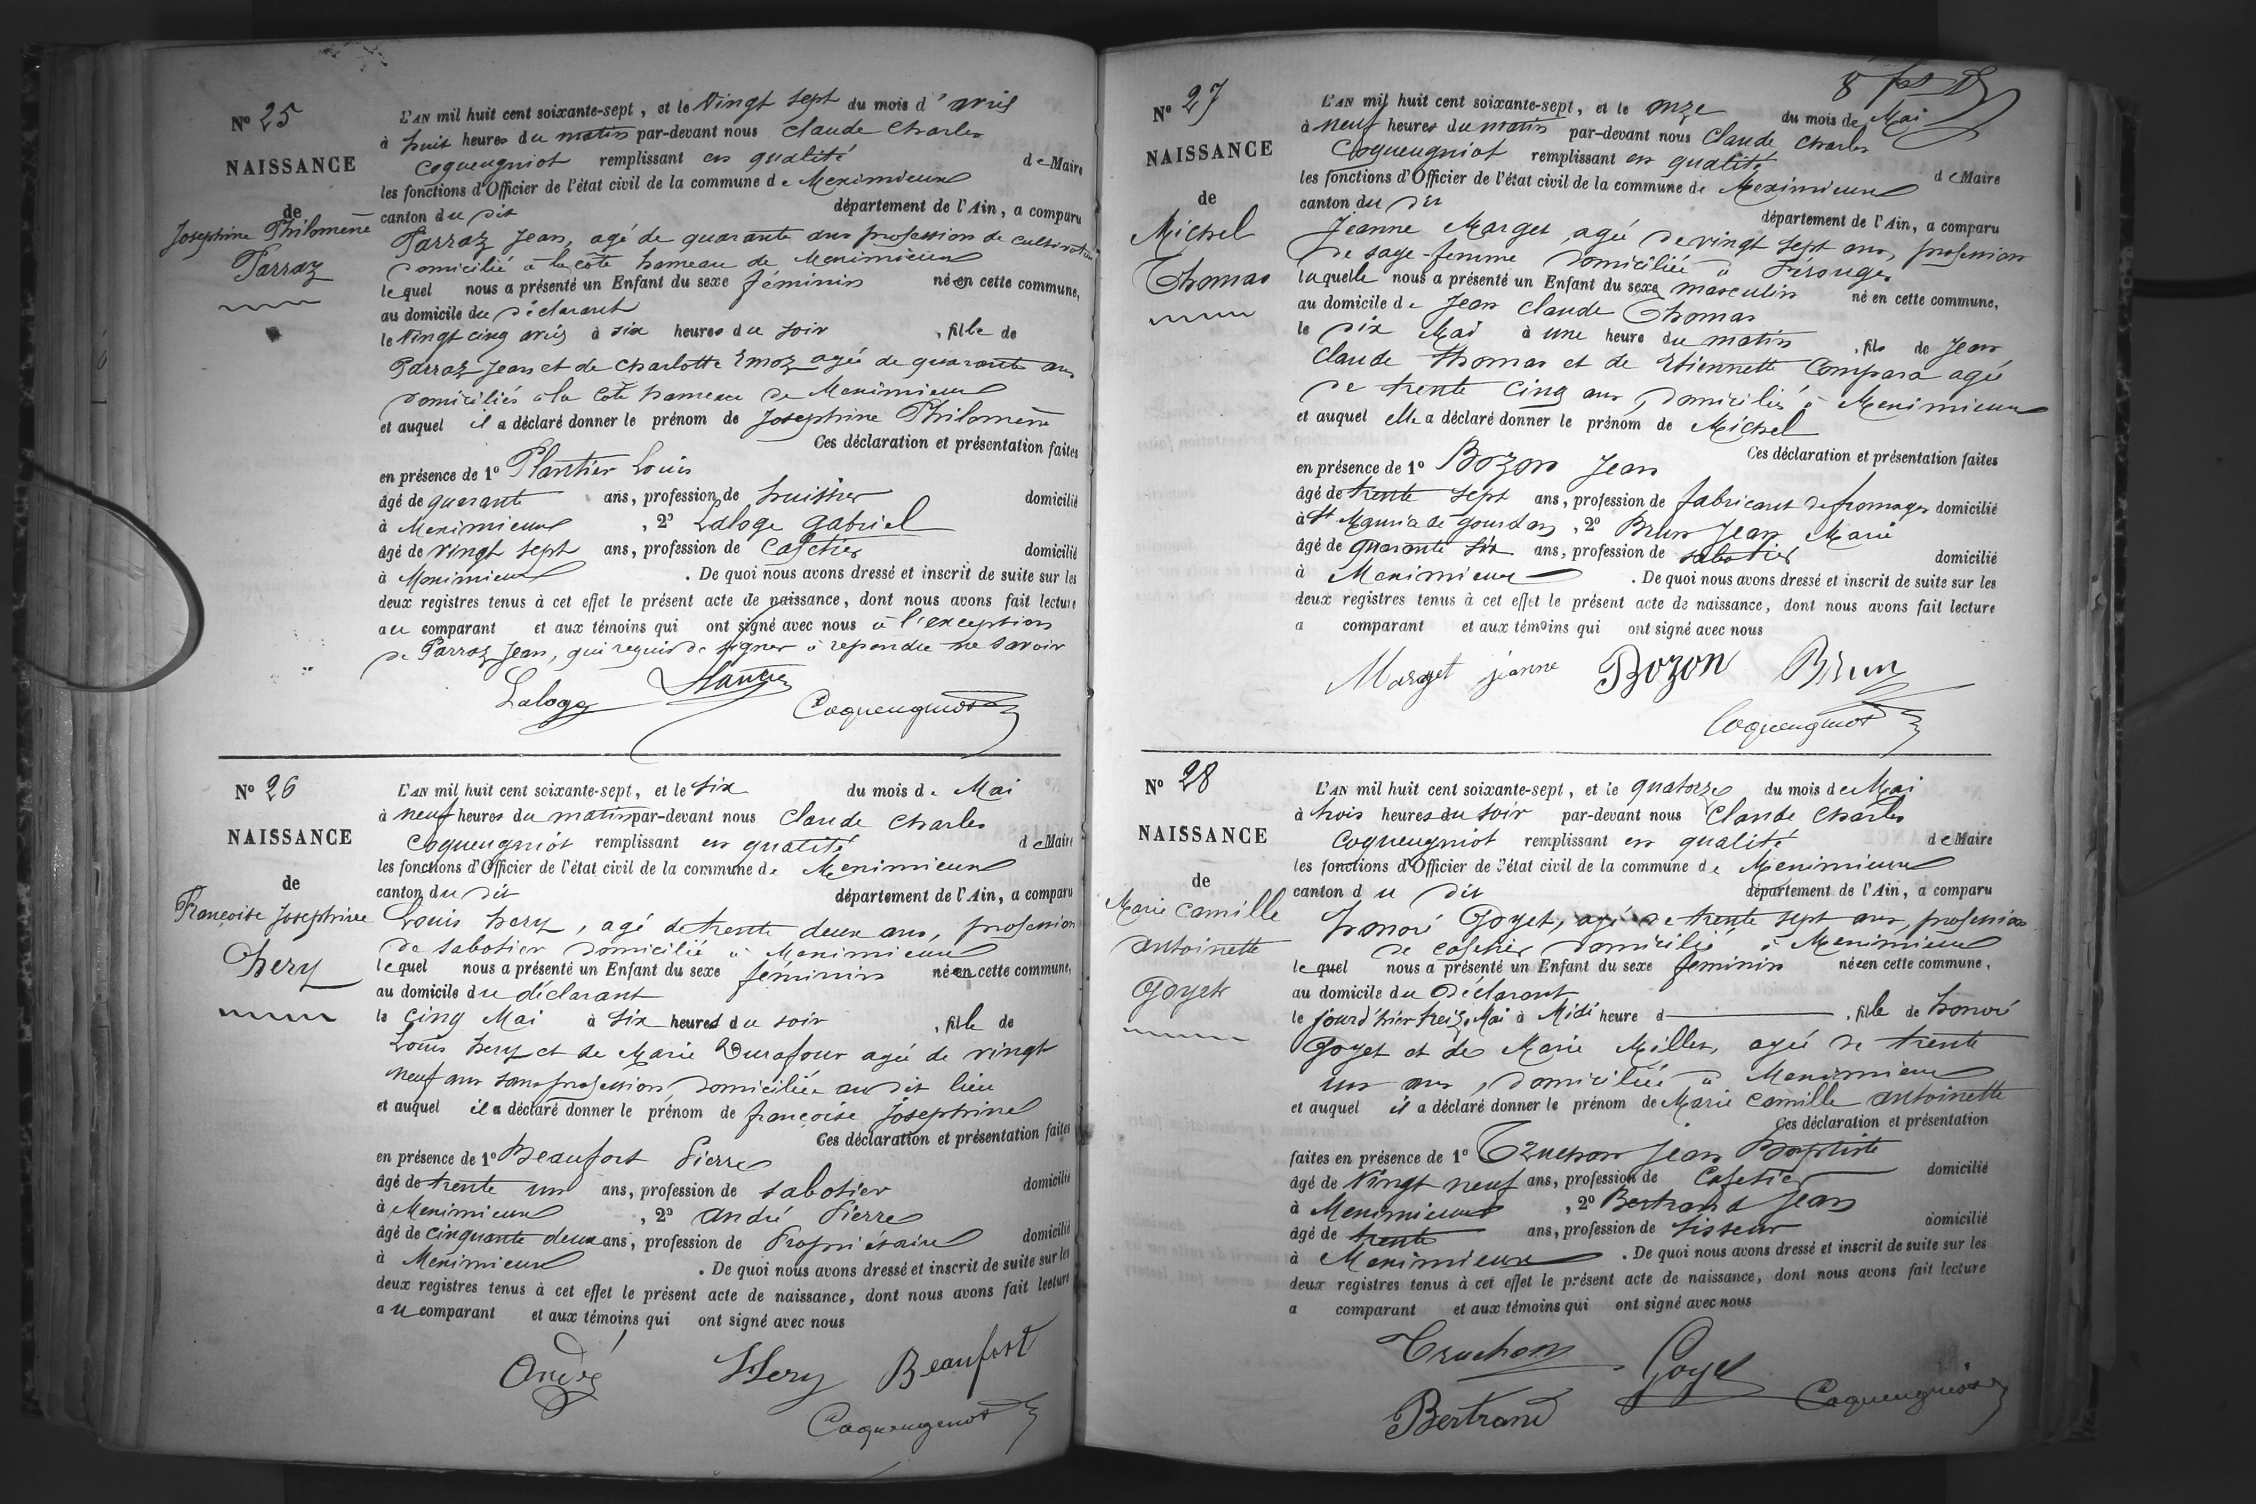 N° 25
NAISSANCE
de
Josephine Philomène
Parraz
L'AN mil huit cent soixante-sept, et le Vingt sept du mois d'avril
à huit heures du matin par-devant nous Claude Charles
Coqueugniot remplissant en qualité de Maire
les fonctions d'Officier de l'état civil de la commune de Meximieux
canton du dit département de l'Ain, a comparu
Parraz Jean, agé de quarante ans profession de cultivateur
domicilié à la côte hameau de Meximieux
lequel nous a présenté un Enfant du sexe féminin né en cette commune,
au domicile du déclarant
le Vingt cinq avril à six heures du soir , fille de
Parraz Jean et de Charlotte Emoz agée de quarante ans
domiciliés à la Côte hameau de Meximieux
et auquel il a déclaré donner le prénom de Josephine Philomène
Ces déclaration et présentation faites
en présence de 1° Plantier Louis
âgé de quarante ans, profession de huissier domicilié
à Meximieux , 2° Laloge Gabriel
âgé de vingt sept ans, profession de Cafetier domicilié
à Meximieux . De quoi nous avons dressé et inscrit de suite sur les
deux registres tenus à cet effet le présent acte de naissance, dont nous avons fait lecture
au comparant et aux témoins qui ont signé avec nous à l'exception
de Parraz Jean, qui requis de signer à repondu ne savoir
Laloge Plantier Coqueugniot
N° 26
NAISSANCE
de
Françoise Josephine
hery
L'AN mil huit cent soixante-sept, et le six du mois de Mai
à neuf heures du matin par-devant nous Claude Charles
Coqueugniot remplissant en qualité de Maire
les fonctions d'Officier de l'état civil de la commune de Meximieux
canton du dit département de l'Ain, a comparu
Louis hery, agé de trente deux ans, profession
de sabotier domicilié à Meximieux
lequel nous a présenté un Enfant du sexe féminin né en cette commune,
au domicile du déclarant
le cinq Mai à six heures du soir , fille de
Louis hery et de Marie Durafour agée de vingt
neuf ans sans profession domiciliée au dit lieu
et auquel il a déclaré donner le prénom de françoise Josephine
Ces déclaration et présentation faites
en présence de 1° Beaufort Pierre
âgé de trente un ans, profession de sabotier domicilié
à Meximieux , 2° André Pierre
âgé de cinquante deux ans, profession de Propriétaire domicilié
à Meximieux . De quoi nous avons dressé et inscrit de suite sur les
deux registres tenus à cet effet le présent acte de naissance, dont nous avons fait lecture
au comparant et aux témoins qui ont signé avec nous
André Hery Beaufort
Coqueugniot
8
N° 27
NAISSANCE
de
Michel
Thomas
L'AN mil huit cent soixante-sept, et le onze du mois de Mai
à neuf heures du matin par-devant nous Claude Charles
Coqueugniot remplissant en qualité de Maire
les fonctions d'Officier de l'état civil de la commune de Meximieux
canton du dit département de l'Ain, a comparu
Jeanne Marget, agée de vingt sept ans, profession
de sage-femme domiciliée à Pérouges
laquelle nous a présenté un Enfant du sexe masculin né en cette commune,
au domicile de Jean Claude Thomas
le dix Mai à une heure du matin , fils de Jean
Claude Thomas et de Etiennette Compara agée
de trente cinq ans, domiciliés à Meximieux
et auquel elle a déclaré donner le prénom de Michel
Ces déclaration et présentation faites
en présence de 1° Bozon Jean
âgé de trente sept ans, profession de fabricant de fromages domicilié
à St Maurice de gourdan, 2° Brun Jean Marie
âgé de quarante six ans, profession de sabotier domicilié
à Meximieux . De quoi nous avons dressé et inscrit de suite sur les
deux registres tenus à cet effet le présent acte de naissance, dont nous avons fait lecture
a comparant et aux témoins qui ont signé avec nous
Marget jeanne Bozon Brun
Coqueugniot
N° 28
NAISSANCE
de
Marie Camille
Antoinette
Goyet
L'AN mil huit cent soixante-sept, et le quatorze du mois de Mai
à trois heures du soir par-devant nous Claude Charles
Coqueugniot remplissant en qualité de Maire
les fonctions d'Officier de l'état civil de la commune de Meximieux
canton du dit département de l'Ain, a comparu
honoré Goyet, agé de trente sept ans, profession
de cafetier domicilié à Meximieux
lequel nous a présenté un Enfant du sexe féminin née en cette commune,
au domicile du Déclarant
le jourd'hier treize Mai à Midi heure d , fille de honoré
Goyet et de Marie Millet, agée de trente
un ans, domiciliée à Meximieux
et auquel il a déclaré donner le prénom de Marie Camille Antoinette
Ces déclaration et présentation
faites en présence de 1° Truchon Jean Baptiste
âgé de Vingt neuf ans, profession de Cafetier domicilié
à Meximieux , 2° Bertrand Jean
âgé de trente ans, profession de tisseur domicilié
à Meximieux . De quoi nous avons dressé et inscrit de suite sur les
deux registres tenus à cet effet le présent acte de naissance, dont nous avons fait lecture
a comparant et aux témoins qui ont signé avec nous
Truchon Goyet
Bertrand Coqueugniot